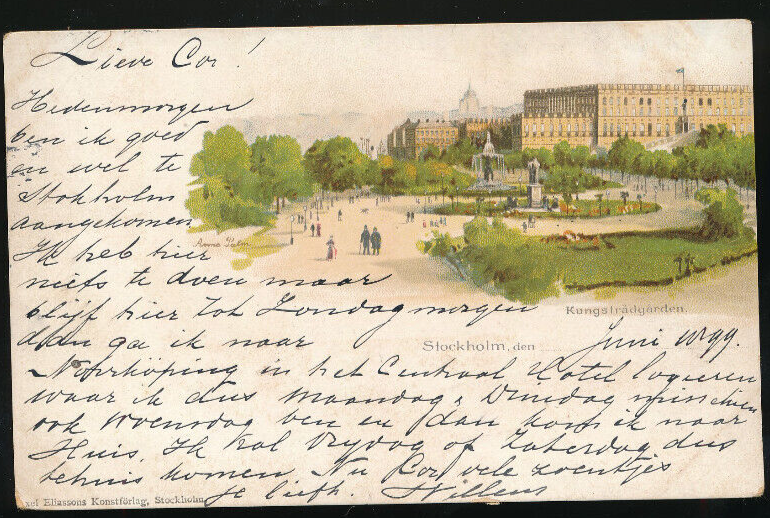 Lieve Cor!
Hedenmorgen
ben ik goed
en wel te
Stokholm
aangekomen
Ik heb hier
niets te doen maar
blijf hier tot Zondagmorgen
dan ga ik naar
Anna Palm
Kungsträdgården.
Stockholm, den Juni 1899.
Noorrköping in het Centraal Hotel logeeren
waar ik dus Maandag & Dinsdag misschien
ook Woensdag ben en dan kom ik naar
Huis. Ik zal Vrydag of Zaterdag dus
tehuis komen. Nu Cor vele zoentjes
je liefh. Willem
Axel Eliassons Konstförlag, Stockholm